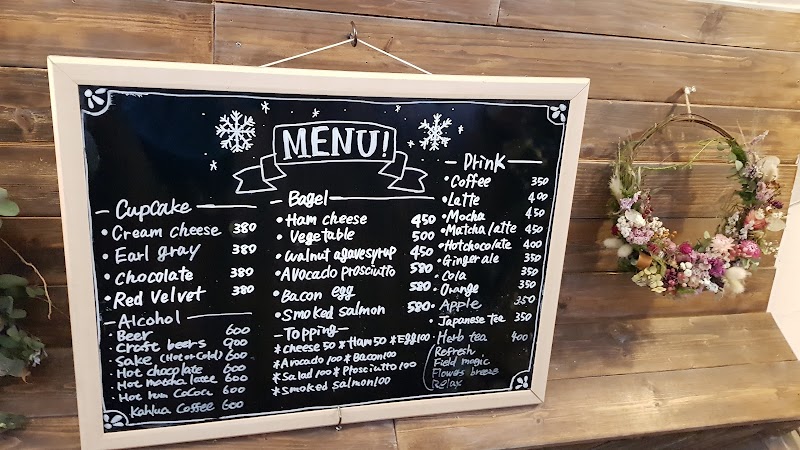 MENU!
- CupCake -
• Cream cheese 380
• Earl gray 380
• chocolate 380
• Red velvet 380
- Alcohol -
• Beer 600
• Craft beers 900
• Sake (Hot or Cold) 600
• Hot chocolate 600
• Hot matcha latte 600
• Hot rum Cocoa 600
Kahlua Coffee 600
- Bagel -
• Ham cheese 450
• Vegetable 500
• walnut agavesyrup 450
• Avocado prosciutto 580
• Bacon egg 580
• Smoked salmon 580
- Topping -
* Cheese 50 * Ham 50 * Egg 100
* Avocado 100 * Bacon 100
* Salad 100 * Phosciutto 100
* Smoked salmon 100
- Drink -
• Coffee 350
• Latte 400
• Mocha 450
• Matcha latte 450
• Hotchocolate 400
• Ginger ale 350
• Cola 350
• Orange 350
• Apple 350
• Japanese tea 350
• Herb tea 400
Refresh
Field magic
Flowers breeze
Relax